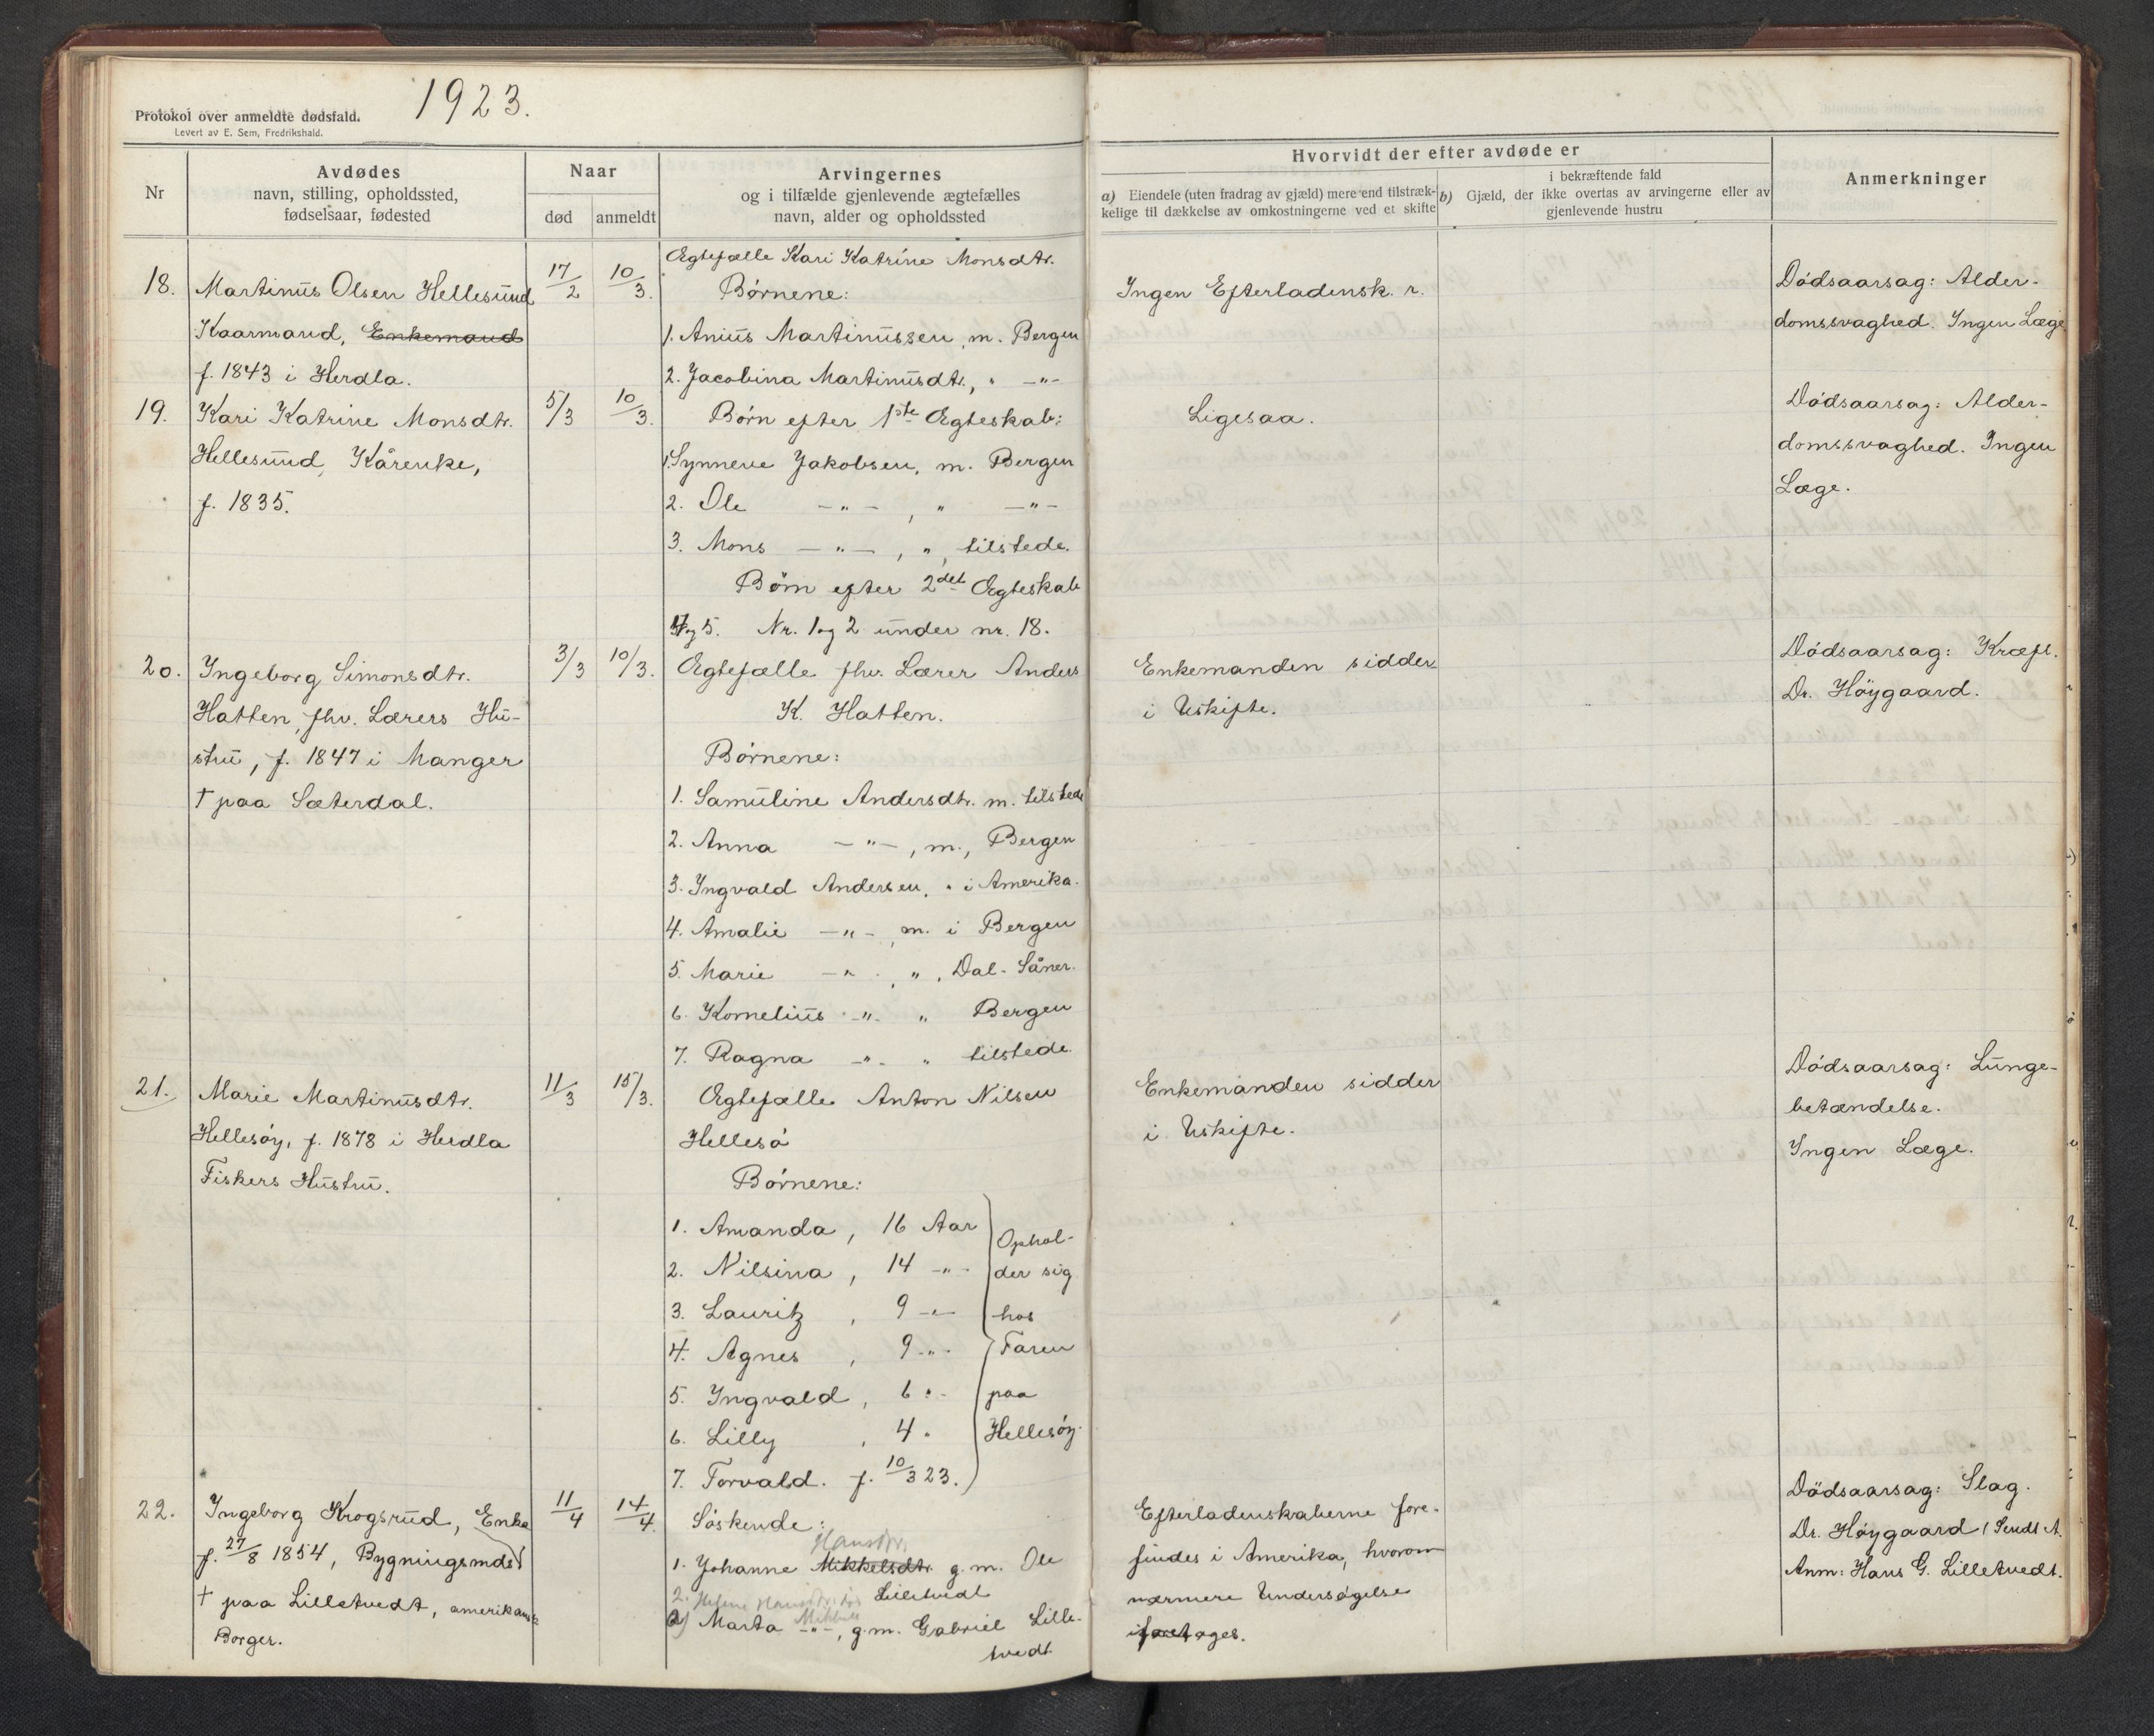 1923.
Protokol over anmeldte dødsfald.
Levert av E. Sem, Fredrikshald.
Nr
Avdødes
navn, stilling, opholdssted,
fødselsaar, fødested
Naar
død
anmeldt
Arvingernes
og i tilfælde gjenlevende ægtefælles
navn, alder og opholdssted
Hvorvidt der efter avdøde er
a) Eiendele (uten fradrag av gjæld) mere end tilstræk-
kelige til dækkelse av omkostningerne ved et skifte
i bekræftende fald
b) Gjæld, der ikke overtas av arvingerne eller av
gjenlevende hustru
Anmerkninger
18.
Martinus Olsen Hellesund
Kaarmand, Enkemand
f. 1843 i Herdla.
17/2
10/3.
Ægtefælle Kari Katrine Monsdtr.
Børnene:
1. Anius Martinussen, m. Bergen
2. Jacobina Martinusdtr., " -"-
Ingen Efterladensk. r.
Dødsaarsag: Alder-
domssvaghed. Ingen Læge.
19.
Kari Katrine Monsdtr.
Hellesund, Kårenke,
f. 1835.
5/3
10/3.
Børn efter 1ste Ægteskab:
1. Synneve Jakobsen, m. Bergen
2. Ole -"-, " -"-
3. Mons -"-, ", tilstede.
Børn efter 2det Ægteskab
4 og 5. Nr. 1 og 2 under nr. 18.
Ligesaa.
Dødsaarsag: Alder-
domssvaghed. Ingen
Læge.
20.
Ingeborg Simonsdtr.
Hatten, fhv. Lærers Hu-
stru, f. 1847 i Manger
† paa Sæterdal.
3/3
10/3.
Ægtefælle fhv. Lærer Anders
K. Hatten.
Børnene:
1. Samuline Andersdtr. m. tilstede
2. Anna -"-, m., Bergen
3. Ingvald Andersen, " i Amerika.
4. Amalie -"-, m. i Bergen
5. Marie -"-, ", Dal-Såner.
6. Kornelius -"- " Bergen
7. Ragna -"- " tilstede.
Enkemanden sidder
i Uskifte.
Dødsaarsag: Kræft.
Dr. Høygaard.
21.
Marie Martinusdtr.
Hellesøy, f. 1878 i Herdla
Fiskers Hustru.
11/3
15/3.
Ægtefælle Anton Nilsen
Hellesø
Børnene:
1. Amanda, 16 Aar
2. Nilsina, 14 -"-
3. Lauritz, 9 -"-
4. Agnes, 9 -"-
5. Ingvald, 6 "-
6. Lilly, 4 "
7. Torvald. f. 10/3 23.
Ophol-
der sig
hos
Faren
paa
Hellesøy.
Enkemanden sidder
i Uskifte.
Dødsaarsag: Lunge-
betændelse.
Ingen Læge.
22.
Ingeborg Krogsrud, Enke
f. 27/8 1854, Bygningsmds
† paa Lilletvedt, amerikansk
Borger.
11/4
14/4.
Søskende:
Hansdtr.
1. Johanne Mikkelsdtr. g.m. Ole
Lilletvedt
2. Helene Hansdtr.
2) Marta -"-, g.m. Gabriel Lille-
tvedt.
Efterladenskaberne fore-
findes i Amerika, hvorom
nærmere Undersøgelse
foretages.
Dødsaarsag: Slag.
Dr. Høygaard
Anm: Hans G. Lilletvedt.